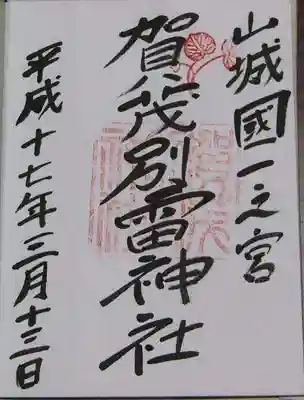 山城國一之宮
賀茂別雷神社
平成十七年三月十三日